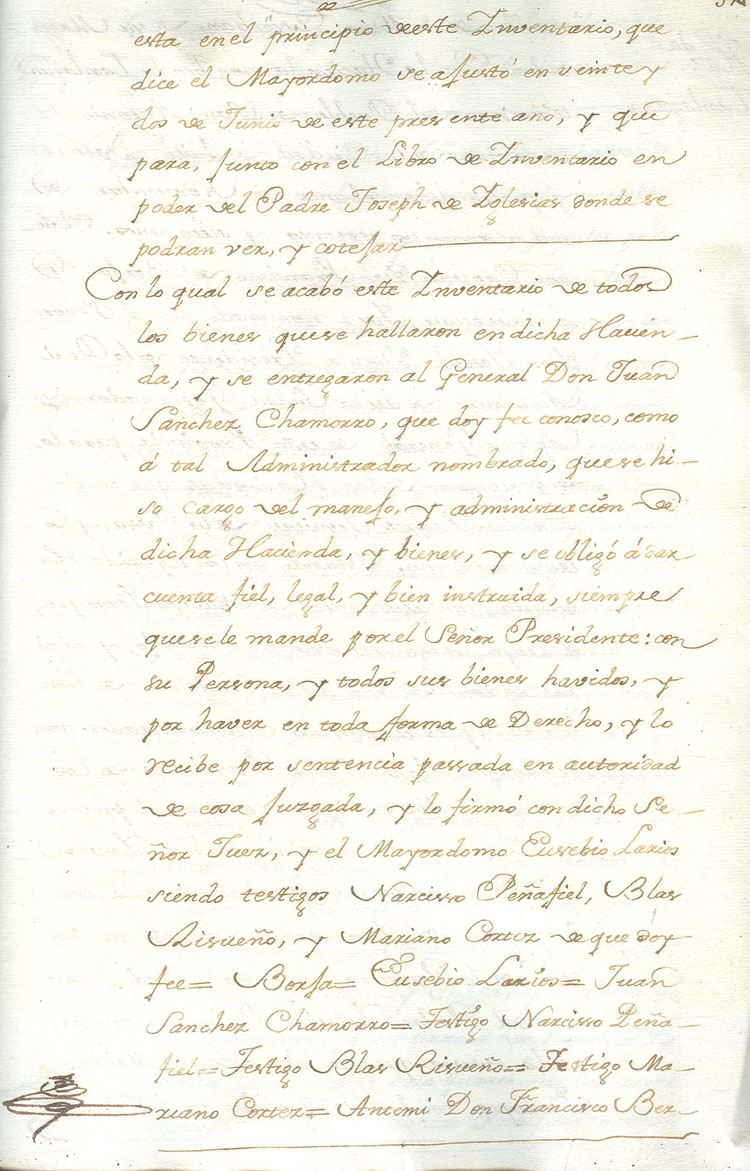 esta en el principio de este Inventario, que
dice el Mayordomo se ajustó en veinte y
dos de Junio de este presente año, y que
para, junto con el Libro de Inventario en
poder del Padre Joseph de Iglesias donde se
podran ver, y cotejar
Con lo qual se acabó este Inventario de todos
los bienes que se hallaron en dicha Hacien-
da, y se entregaron al General Don Juan
Sanchez Chamorro, que doy fee conosco, como
á tal Administrador nombrado, que se hi-
so cargo del manejo, y administración de
dicha Hacienda, y bienes, y se obligó á dar
cuenta fiel, legal, y bien instruida, siempre
que se le mande por el Señor Presidente: con
su Persona, y todos sus bienes havidos, y
por haver en toda forma de Derecho, y lo
recibe por sentencia passada en autoridad
de cosa juzgada, y lo firmó con dicho Se-
ñor Juez, y el Mayordomo Eusebio Larios
siendo testigos Narcisso Peñafiel, Blas
Risueño, y Mariano Cortez de que doy
fee= Borja= Eusebio Larios= Juan
Sanchez Chamorro= Testigo Narcisso Peña-
fiel= Testigo Blas Risueño= Testigo Ma-
riano Cortez= Antemi Don Francisco Ber-